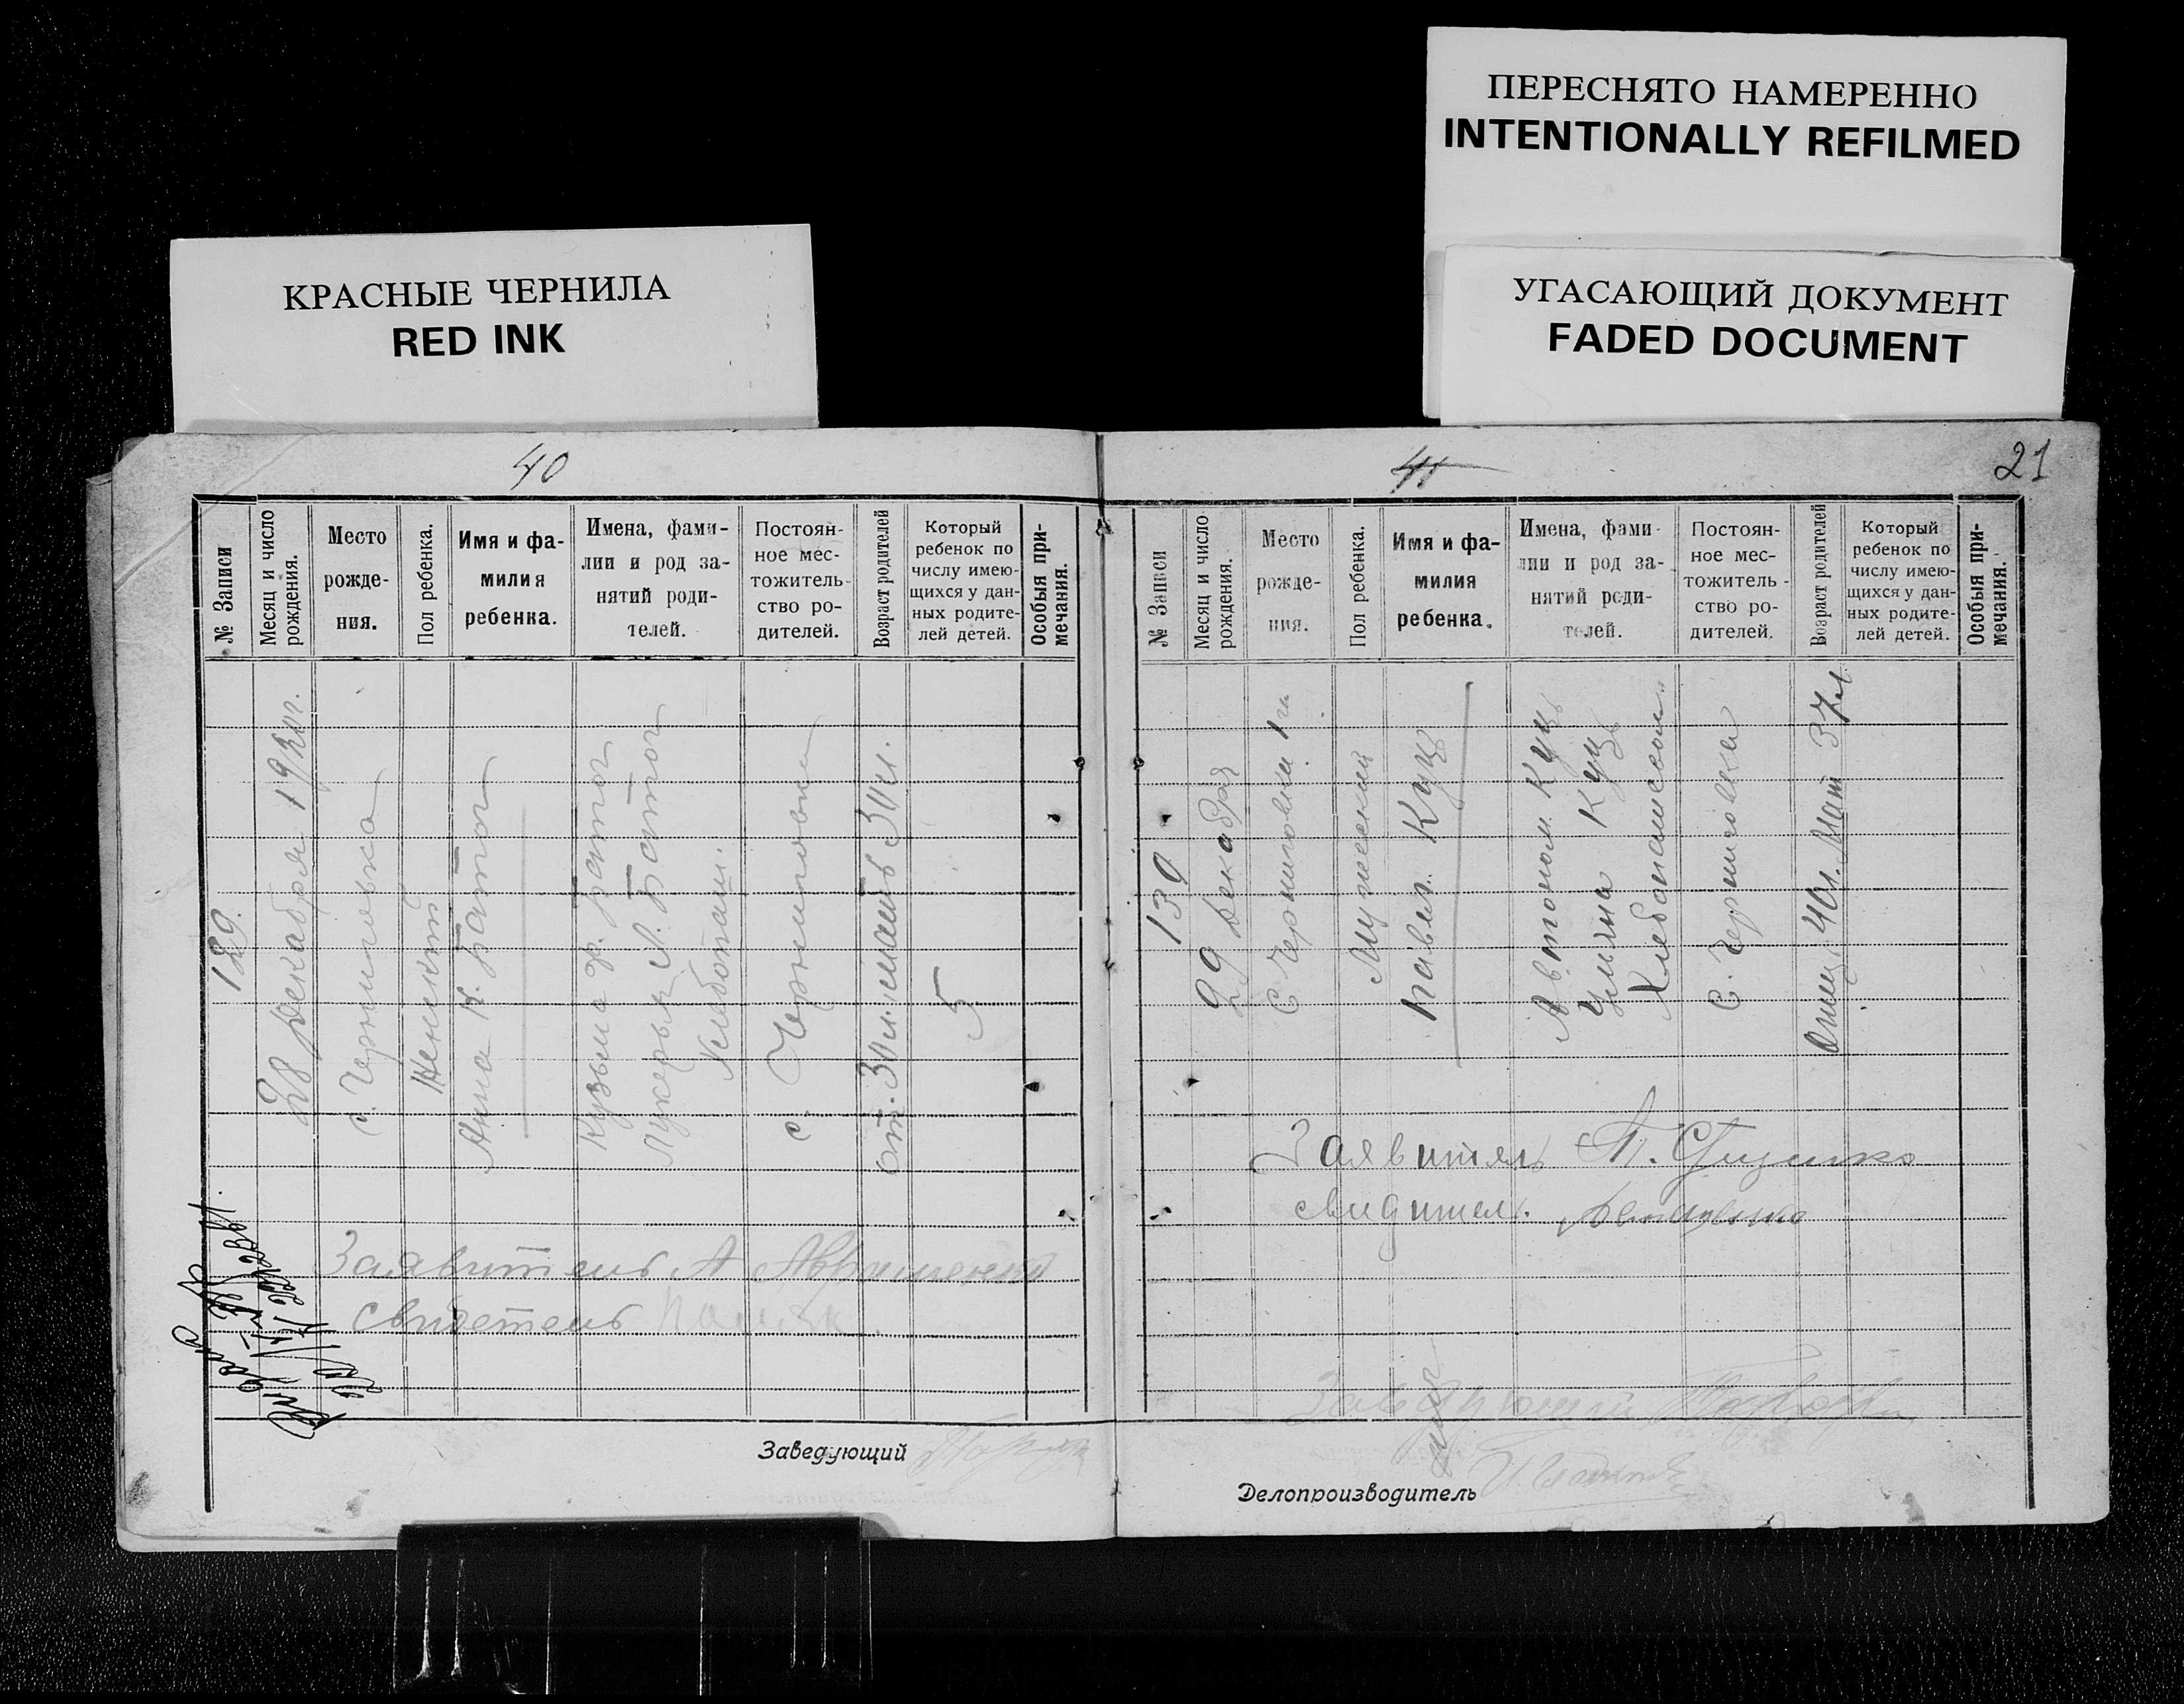 ПЕРЕСНЯТО НАМЕРЕННО
INTENTIONALLY REFILMED
КРАСНЫЕ ЧЕРНИЛА
RED INK
УГАСАЮЩИЙ ДОКУМЕНТ
FADED DOCUMENT
40
№ Записи
Месяц и число
рождения.
Место
рожде-
ния.
Пол ребенка.
Имя и фа-
милия
ребенка.
Имена, фами-
лии и род за-
нятий роди-
телей.
Постоян-
ное мес-
тожитель-
ство ро-
дителей.
Возраст родителей
Который
ребенок по
числу имею-
щихся у дан-
ных родите-
лей детей.
Особыя при-
мечания.
129.
28 Декабря
с. Черниговка
Женский
Анна К. Батог
Кузьма Ф. Батог
Лукерья Л. Батог
Хлебопаш.
с. Черниговка
от. 30 л. мать 30 л.
5
Заявитель А Авраменко
свидетель
Заведующий
41
21
№ Записи
Месяц и число
рождения.
Место
рожде-
ния.
Пол ребенка.
Имя и фа-
милия
ребенка.
Имена, фами-
лии и род за-
нятий роди-
телей.
Постоян-
ное мес-
тожитель-
ство ро-
дителей.
Возраст родителей
Который
ребенок по
числу имею-
щихся у дан-
ных родите-
лей детей.
Особыя при-
мечания.
130
29 Декабря
с. Черниговка
Мужеский
Павел Куц
Автоном Куц
Ульяна Куц
Хлебопашеством
с. Черниговка
Отец 40 л. Мат 37 л.
Заявитель
свидитель.
Заведующий
Делопроизводитель